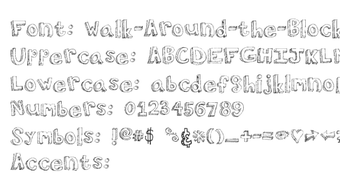 Font: Walk-Around-the-Block
Uppercase: ABCDEFGHIJKL
Lowercase: abcdefghijklmno
Numbers: 0123456789
Symbols: !@#$ %&*()_+-=
Accents: